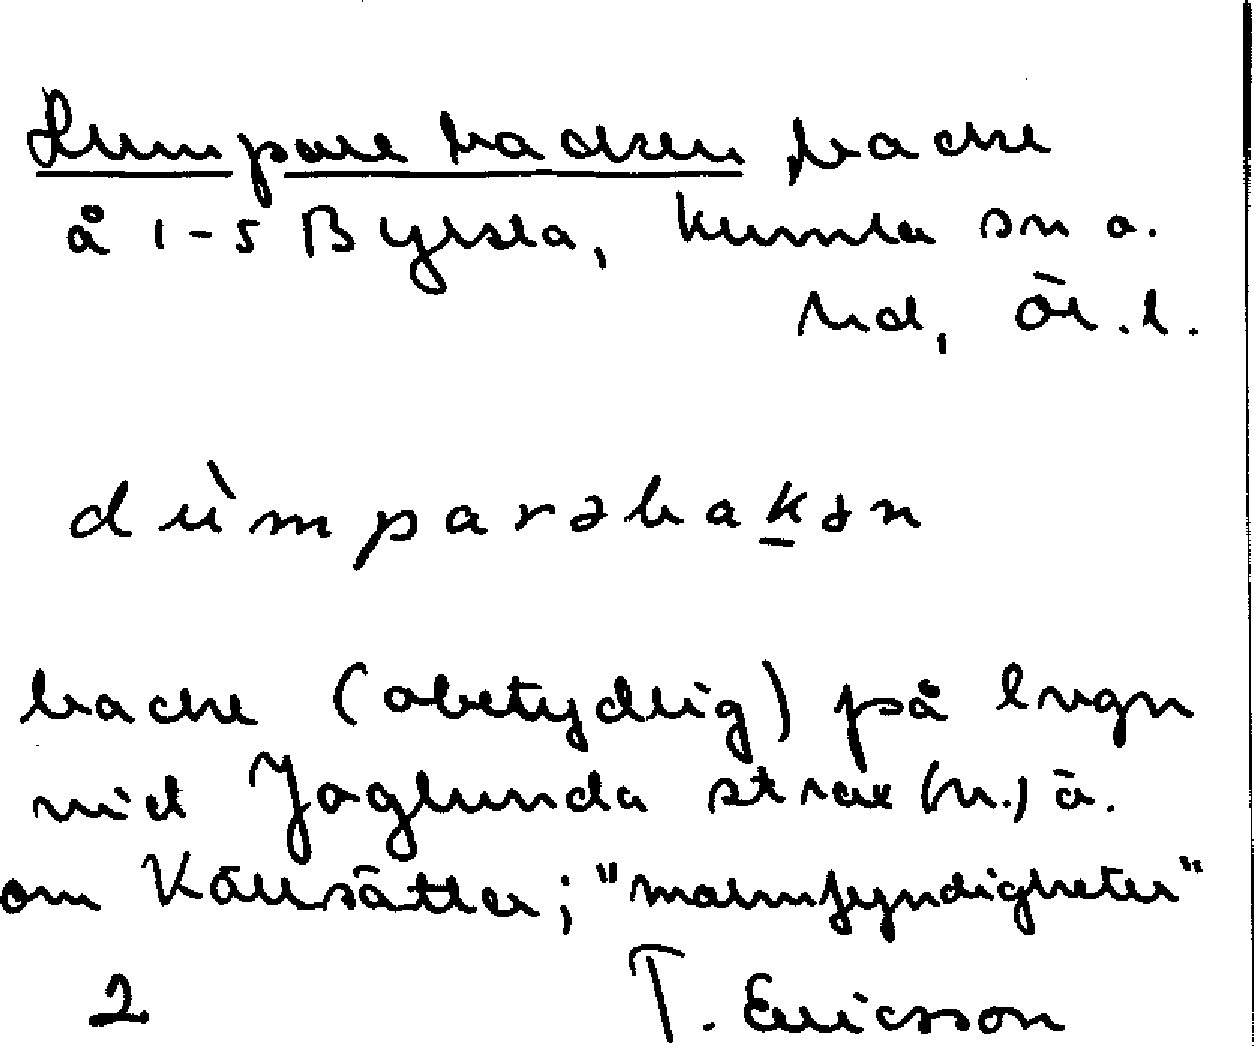 Dumparebacken, backe
å 1-5 Byrsta, Kumla sn o.
hd, Ör.l.
dùmparəbak̲ən
backe (obetydlig) på lvgn
vid Joglunda strax (n.) ö.
om Källsätter; "malmfyndigheter"
2 T. Ericsson